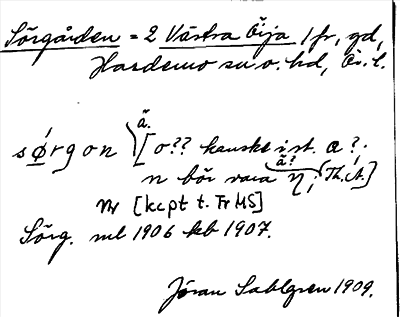 Sörgården = 2 Västra Öija 1 fr, gd,
Hardemo sn o. hd, Ör. l.
ä.
sørgon [o?? kanske ist. a?.
n bör vara ŋ; ä? Th. A.]
Nr [kcpt t. Fr MS]
Sörg. ml 1906 kb 1907.
Jöran Sahlgren 1909.